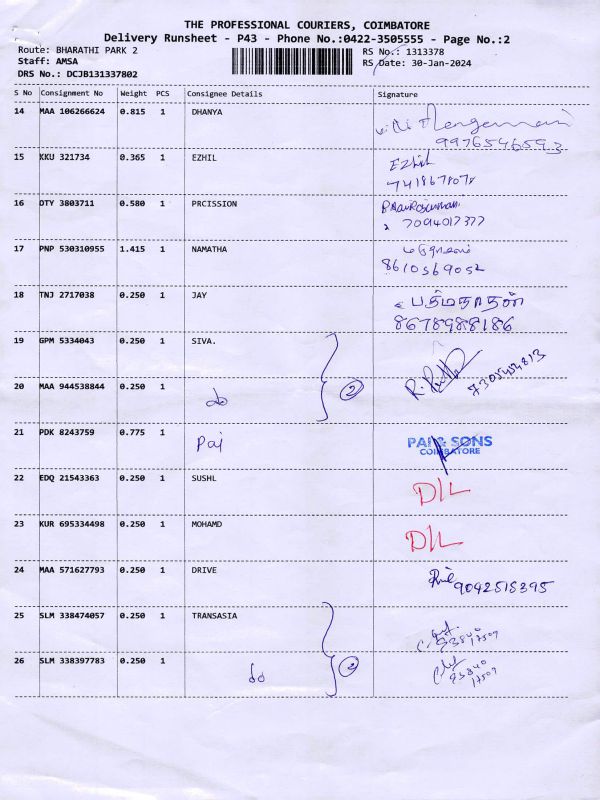 THE PROFESSIONAL COURIERS, COIMBATORE
Delivery Runsheet - P43 - Phone No.:0422-3505555 - Page No.:2
Route: BHARATHI PARK 2 RS No.: 1313378
Staff: AMSA RS Date: 30-Jan-2024
DRS No.: DCJB131337802
S No Consignment No Weight PCS Consignee Details Signature
14 MAA 106266624 0.815 1 DHANYA
9976546593
15 KKU 321734 0.365 1 EZHIL Ezhil
16 DTY 3803711 0.580 1 PRCISSION
7094017377
17 PNP 530310955 1.415 1 NAMATHA
8610569052
18 TNJ 2717038 0.250 1 JAY பத்மநாதன்
8678988186
19 GPM 5334043 0.250 1 SIVA.
20 MAA 944538844 0.250 1 do 2 7305454813
21 PDK 8243759 0.775 1 Pai PAI & SONS
COIMBATORE
22 EDQ 21543363 0.250 1 SUSHL D/L
23 KUR 695334498 0.250 1 MOHAMD D/L
24 MAA 571627793 0.250 1 DRIVE 9042518395
25 SLM 338474057 0.250 1 TRANSASIA
93840
17509
26 SLM 338397783 0.250 1 do 2
93840
17509